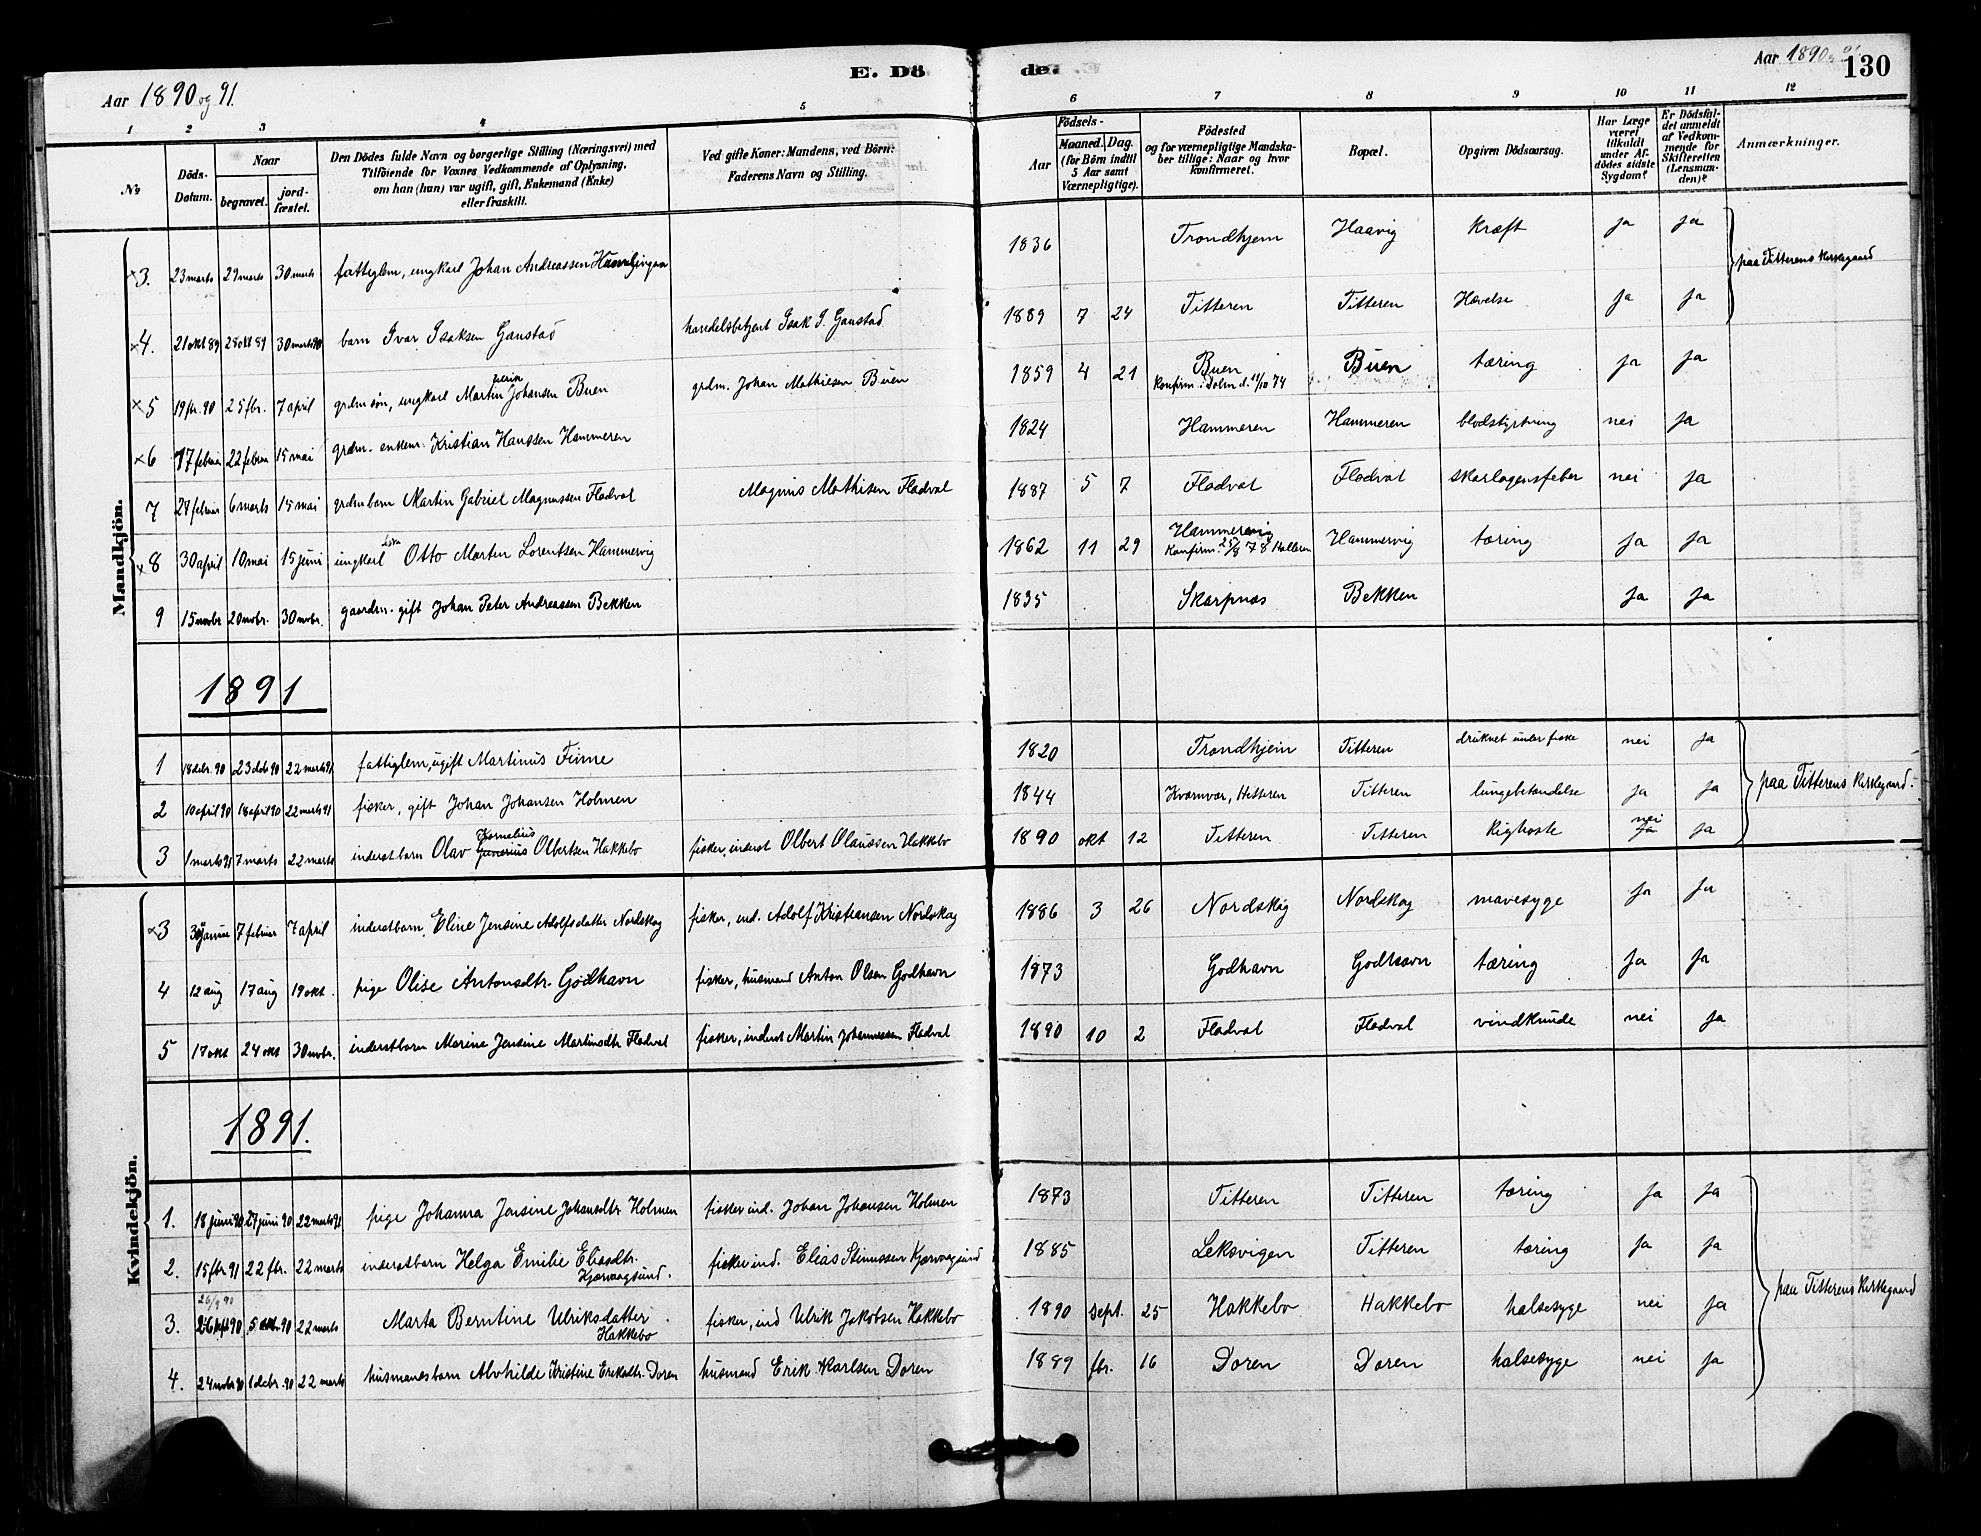 Aar 1890 og 91.
E. Dö
de.
Aar 1890
130
1 2 3 4 5 6 7 8 9 10 11 12
No
Döds-Datum.
Naar
begravet.
jord-fæstet.
Den Dödes fulde Navn og borgerlige Stilling (Næringsvei) med
Tilföiende for Voxnes Vedkommende af Oplysning,
om han (hun) var ugift, gift, Enkemand (Enke)
eller fraskilt.
Ved gifte Koner: Mandens, ved Börn:
Faderens Navn og Stilling.
Födsels-
Aar
Maaned. Dag.
(for Börn indtil
5 Aar samt
Værnepligtige).
Födested
og for værnepligtige Mandska-
ber tillige: Naar og hvor
konfirmeret.
Bopæl.
Opgiven Dödsaarsag.
Har Læge
været
tilkaldt
under Af-
dødes sidste
Sygdom?
Er Dödsfal-
det anmeldt
af Vedkom-
mende for
Skifteretten
(Lensman-
den)?
Anmærkninger.
Mandkjön.
×3. 23 marts 29 marts 30 marts fattiglem, ungkarl Johan Andreassen 1836 Trondhjem Haavig Kræft ja ja
paa Titterens Kirkegaard
×4. 21 okt 89 28 okt 89 30 marts 90 barn Ivar Isaksen Ganstad handelsbetjent Isak I. Ganstad 1889 7 24 Titteren Titteren Hævelse ja ja
×5 19 fbr. 90 25 fbr. 7 april grdm søn, ungkarl Martin Johansen Buen grdm. Johan Mathiesen Buen 1859 4 21 Buen Konfirm. i Dolm d. 11/10 74 Buen tæring ja ja
×6 17 februar 22 februar 15 mai grdm. enkem. Kristian Hanssen Hammeren 1824 Hammeren Hammeren blodstyrtning nei ja
7 27 februar 6 marts 15 mai grdm barn Martin Gabriel Magnussen Fladval Magnus Mathisen Fladval 1887 5 7 Fladval Fladval skarlagensfeber nei ja
×8 30 april 10 mai 15 juni ungkarl Otto Martin Lorentsen Hammervig 1862 11 29 Hammervig Konfirm. 25/8 78 Halleren Hammervig tæring ja ja
9 15 novbr 20 novbr. 30 novbr. gaardm. gift Johan Peter Andreassen Bekken 1835 Skarpnæs Bekken ja ja
1891
1 18 decbr. 90 23 decb 90 22 marts 91 fattiglem, ugift Martinus Finne 1820 Trondhjem Titteren druknet under fiske nei ja
2 10 april 90 18 april 90 22 marts 91 fisker, gift Johan Johansen Holmen 1844 Kvarnvær, Hitteren Titteren lungebetændelse ja ja
paa Titterens Kirkegaard.
3 1 marts 91 7 marts 22 marts inderstbarn Olav Kornelius Olbertsen Hakkebo fisker, inderst Olbert Olaussen Hakkebo 1890 okt 12 Titteren Titteren Kighoste nei ja ja
Kvindekjön.
×3 30 januar 7 februar 7 april inderstbarn Eline Jensine Adolfsdatter Nordskag fisker, ind. Adolf Kristiansen Nordskag 1886 3 26 Nordskig Nordskag mavesyge ja ja
4 12 aug 17 aug 19 okt. pige Olise Antonsdtr. Godhavn fisker, husmand Anton Olsen Godhavn 1873 Godhavn Godhavn tæring ja ja
5 17 okt 24 okt 30 novbr. inderstbarn Marine Jensine Martinsdtr Fladval fisker, inderst Martin Johannesen Fladval 1890 10 2 Fladval Fladval vindknude nei ja
1891.
1. 18 juni 90 27 juni 90 22 marts 91 pige Johanna Jensine Johansdtr. Holmen fisker ind. Johan Johansen Holmen 1873 Titteren Titteren tæring ja ja
2. 15 fbr 91 22 fbr. 22 marts inderstbarn Helga Emilie Eliasdtr. Kjærvaagsund. fisker ind. Elias Simussen Kjærvaagsund 1885 Leksvigen Titteren tæring ja ja
26/9 90
3. 26 sept 90 5 okt. 90 22 marts Marta Berntine Ulriksdatter Hakkebo fisker, ind Ulrik Jakobsen Hakkebo 1890 sept. 25 Hakkebo Hakkebo halsesyge nei ja
paa Titterens Kirkegaard
4. 24 novbr 90 1 decbr. 90 22 marts husmandsbarn Alvhilde Kristine Eriksdtr. Doren husmand Erik Karlsen Doren 1889 fbr. 16 Doren Doren halsesyge nei ja